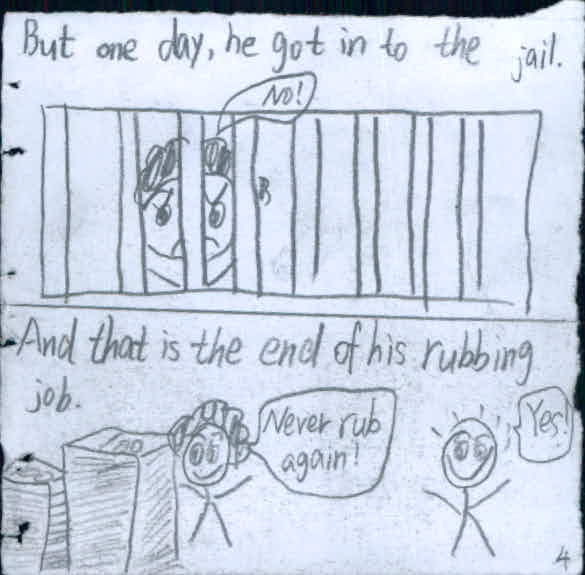 But one day, he got in to the jail.
No!
And that is the end of his rubbing
job.
Never rub
again!
Yes!
4